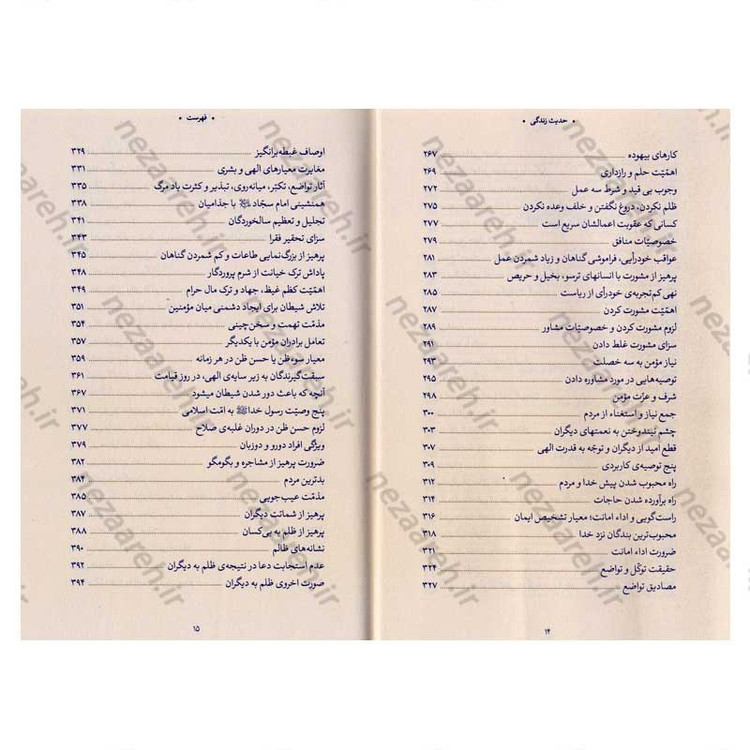 • حدیث زندگی •
کارهای بیهوده ۲۶۷
اهمّیّت حلم و رازداری ۲۶۹
وجوب بی قید و شرط سه عمل ۲۷۲
ظلم نکردن، دروغ نگفتن و خلف وعده نکردن ۲۷۵
کسانی که عقوبت اعمالشان سریع است ۲۷۷
خصوصیّات منافق ۲۷۹
عواقب خودرأیی، فراموشی گناهان و زیاد شمردن عمل ۲۸۱
پرهیز از مشورت با انسانهای ترسو، بخیل و حریص ۲۸۳
نهی کم‌تجربه‌ی خودرأی از ریاست ۲۸۵
اهمّیّت مشورت کردن ۲۸۷
لزوم مشورت کردن و خصوصیّات مشاور ۲۸۹
سزای مشورت غلط دادن ۲۹۱
نیاز مؤمن به سه خصلت ۲۹۳
توصیه‌هایی در مورد مشاوره دادن ۲۹۵
شرف و عزّت مؤمن ۲۹۸
جمع نیاز و استغناء از مردم ۳۰۰
چشم نیندوختن به نعمتهای دیگران ۳۰۳
قطع امید از دیگران و توجّه به قدرت الهی ۳۰۷
پنج توصیه‌ی کاربردی ۳۰۹
راه محبوب شدن پیش خدا و مردم ۳۱۲
راه برآورده شدن حاجات ۳۱۴
راست‌گویی و اداء امانت؛ معیار تشخیص ایمان ۳۱۶
محبوب‌ترین بندگان نزد خدا ۳۱۸
ضرورت اداء امانت ۳۲۱
حقیقت توکّل و تواضع ۳۲۴
مصادیق تواضع ۳۲۷
۱۴
• فهرست •
اوصاف غبطه‌برانگیز ۳۲۹
مغایرت معیارهای الهی و بشری ۳۳۱
آثار تواضع، تکبّر، میانه‌روی، تبذیر و کثرت یاد مرگ ۳۳۵
همنشینی امام سجّاد ﷺ با جذامیان ۳۳۸
تجلیل و تعظیم سالخوردگان ۳۴۱
سزای تحقیر فقرا ۳۴۳
پرهیز از بزرگ‌نمایی طاعات و کم شمردن گناهان ۳۴۵
پاداش ترک خیانت از شرم پروردگار ۳۴۸
اهمّیّت کظم غیظ، جهاد و ترک مال حرام ۳۴۹
تلاش شیطان برای ایجاد دشمنی میان مؤمنین ۳۵۱
مذمّت تهمت و سخن‌چینی ۳۵۴
تعامل برادران مؤمن با یکدیگر ۳۵۷
معیار سوءظن یا حسن ظن در هر زمانه ۳۵۹
سبقت‌گیرندگان به زیر سایه‌ی الهی، در روز قیامت ۳۶۱
آنچه که باعث دور شدن شیطان میشود ۳۶۷
پنج وصیّت رسول خدا ﷺ به امّت اسلامی ۳۷۱
لزوم حسن ظن در دوران غلبه‌ی صلاح ۳۷۷
ویژگی افراد دورو و دوزبان ۳۷۹
ضرورت پرهیز از مشاجره و بگومگو ۳۸۲
بدترین مردم ۳۸۴
مذمّت عیب‌جویی ۳۸۵
پرهیز از شماتت دیگران ۳۸۷
پرهیز از ظلم به بی‌کسان ۳۸۸
نشانه‌های ظالم ۳۹۰
عدم استجابت دعا در نتیجه‌ی ظلم به دیگران ۳۹۲
صورت اخروی ظلم به دیگران ۳۹۴
۱۵
nezaareh.ir